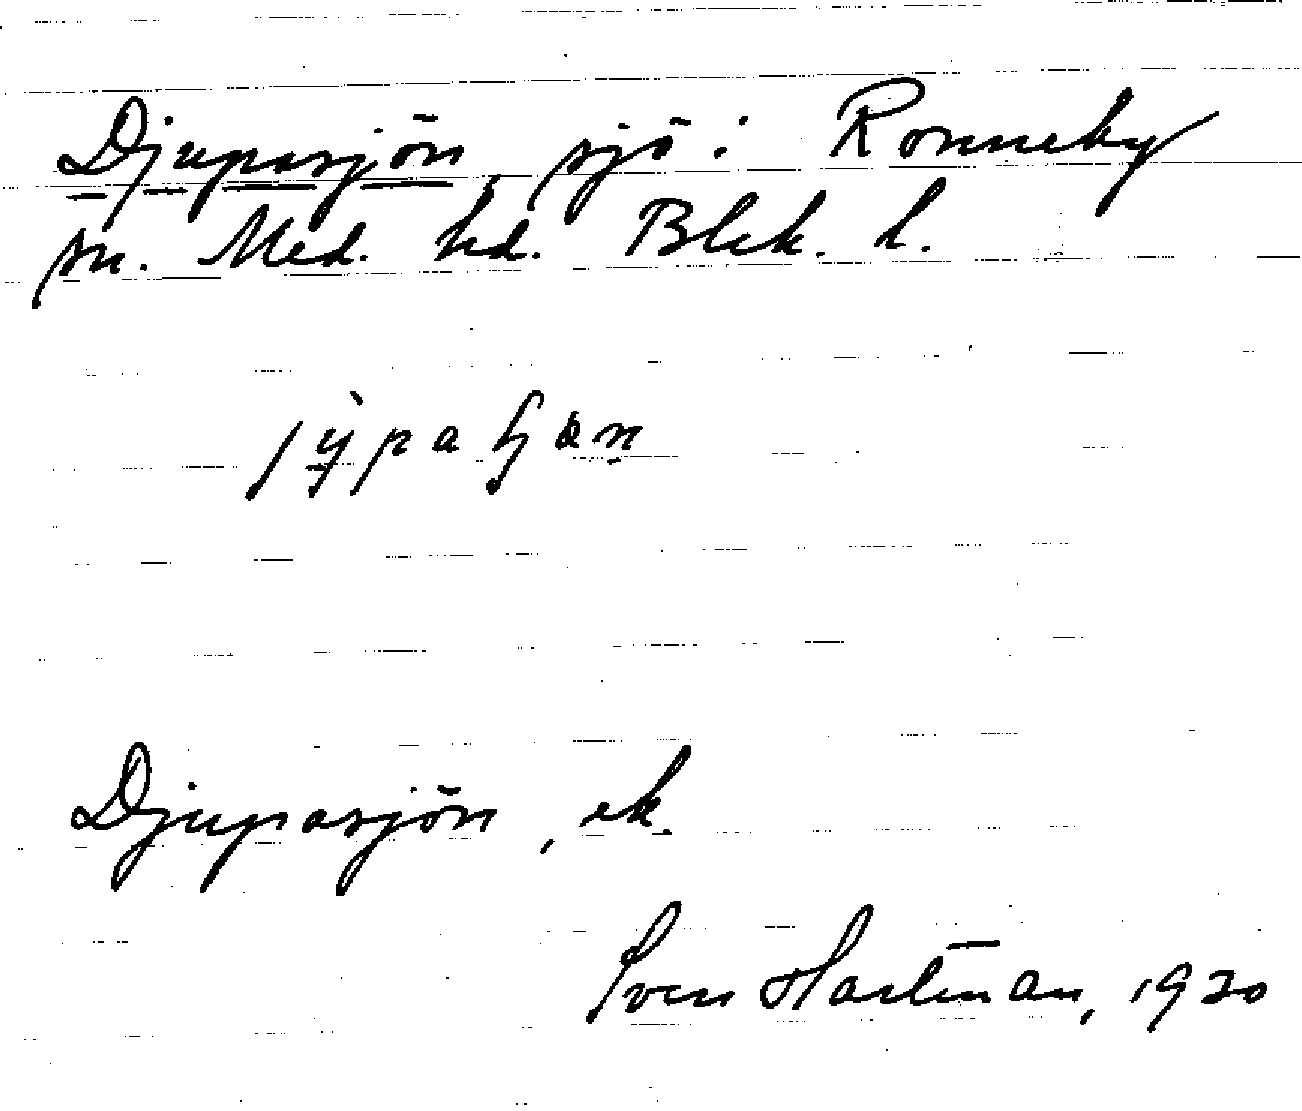 Djupasjön, sjö: Ronneby
sn. Med. hd. Blek. l.
Djupasjön, ek.
Sven Hartman, 1930